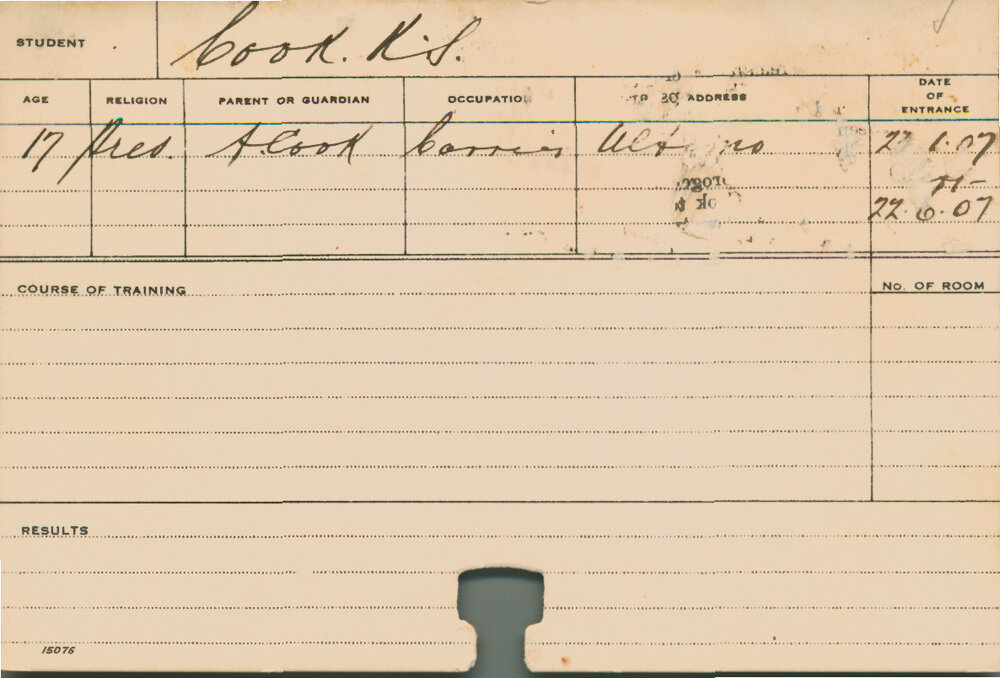 STUDENT Cook. K.S.
AGE RELIGION PARENT OR GUARDIAN OCCUPATIO ADDRESS DATE OF ENTRANCE
17 Pres. A. Cook Carrier 22.6.07
22.6.07
COURSE OF TRAINING No. OF ROOM
RESULTS
15076